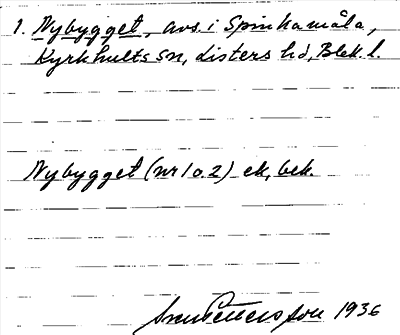 1. Nybygget, avs. i Spinkamåla,
Kyrkhults sn, Listers hd, Blek. l.
Nybygget (nr 1 o. 2) ek, bek.
1936